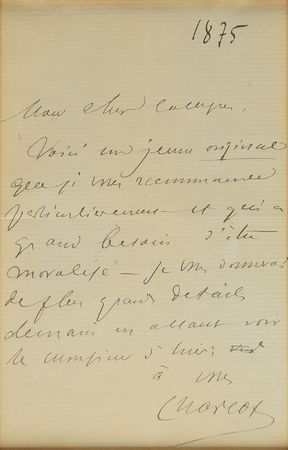 1875
Mon cher collègue,
Voici un jeune original
que je vous recommande
particulièrement et qui a
grand besoin d'être
moralisé — je vous donnerai
de plus grands détails
demain en allant voir
le monsieur d'hier
à vous
Charcot